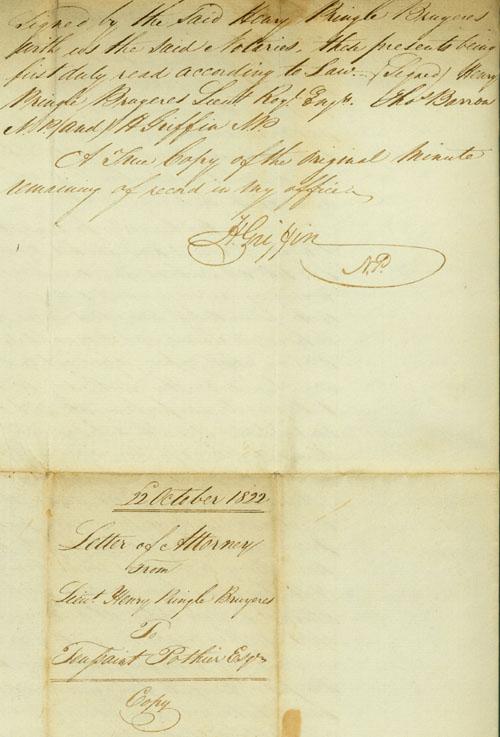 Signed by the said Henry Pringle Bruyeres
with us the said Notaries, these presents being
first duly read according to Law. (Signed) Henry
Pringle Bruyeres Lieut Royl. Engrs. Thos Barron
N.P. (and) H Griffin N.P.
A True Copy of the original minute
remaining of record in my office
H. Griffin
N.P.
22 October 1822
Letter of Attorney
From
Lieut Henry Pringle Bruyeres
To
Toussaint Pothier Esqr
Copy